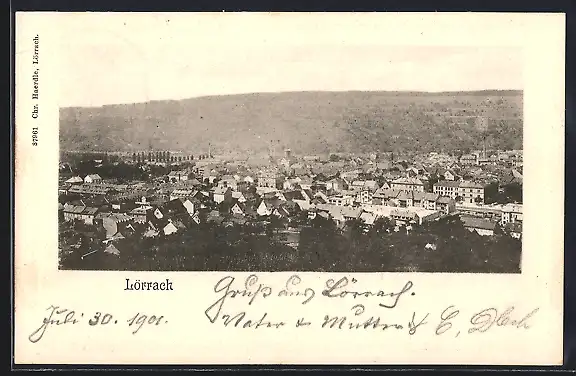 37961 Chr. Haerdle, Lörrach.
Lörrach
Gruß aus Lörrach.
Juli 30. 1901.
Vater & Mutter